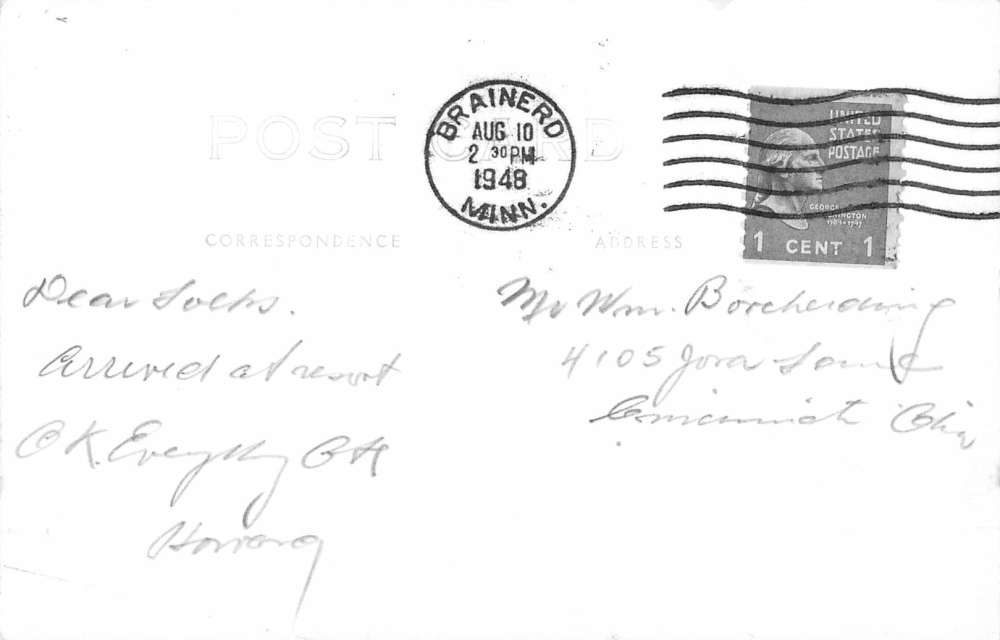 POST CARD
BRAINERD
AUG 10
2 30 PM
1948
MINN.
UNITED
STATES
POSTAGE
GEORGE WASHINGTON
1789-1797
1 CENT 1
CORRESPONDENCE
ADDRESS
Dear Folks.
Arrived at resort
OK. Everything OK
Howard
Mr Wm. Borcherding
4105 Jora Lane
Cincinnati Ohio